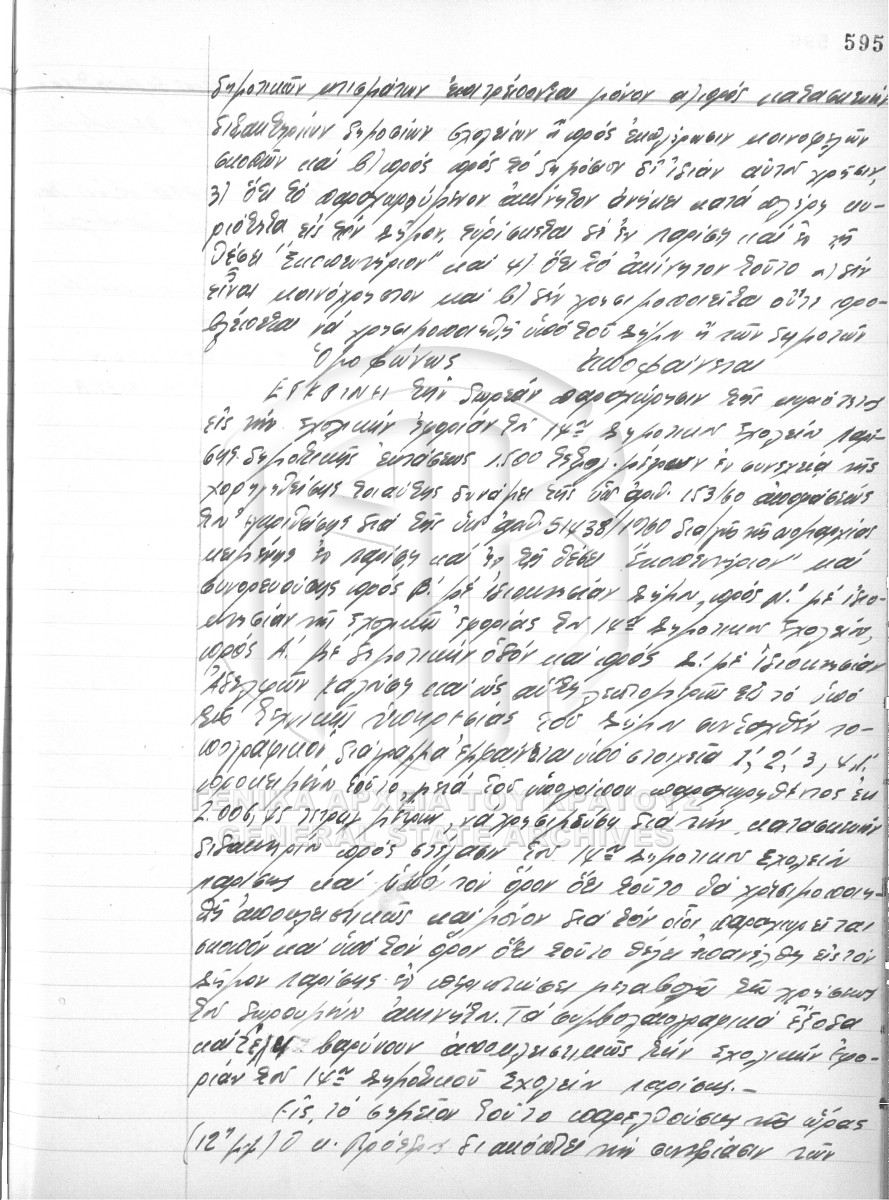 595
δημοτικῶν κτισμάτων ἐπιτρέπονται μόνον α) πρός κατασκευήν
διδακτηρίων δημοσίων σχολείων ἤ πρός ἐκπλήρωσιν κοινοφελῶν
σκοπῶν καί β) πρός πρός τό δημόσιον δι' ἰδίαν αὐτοῦ χρῆσιν,
3) ὅτι τό παραχωρούμενον ἀκίνητον ἀνήκει κατά πλήρη κυ-
ριότητα εἰς τόν Δῆμον, εὑρίσκεται δέ ἐν Λαρίσῃ καί ἐν τῇ
θέσει "Σκοπευτήριον" καί 4) ὅτι τό ἀκίνητον τοῦτο α) δέν
εἶναι κοινόχρηστον καί β) δέν χρησιμοποιεῖται οὔτε προ-
βλέπεται νά χρησιμοποιηθῇ ὑπό τοῦ Δήμου ἤ τῶν δημοτῶν
Ὁμοφώνως ἀποφαίνεται
ΕΓΚΡΙΝΕΙ τήν δωρεάν παραχώρησιν τῆς κυριότητος
εἰς τήν Σχολικήν Ἐφορίαν τοῦ 14ου Δημοτικοῦ Σχολείου Λαρί-
σης δημοτικῆς ἐκτάσεως 1.500 τετραγ. μέτρων ἐν συνεχείᾳ τῆς
χορηγηθείσης τοιαύτης δυνάμει τῆς ὑπ' ἀριθ. 153/60 ἀποφάσεώς
του ἐγκριθείσης διά τῆς ὑπ' ἀριθ. 51438/1960 διαγῆς τῆς νομαρχίας
κειμένης ἐν Λαρίσῃ καί ἐν τῇ θέσει "Σκοπευτήριον" καί
συνορευούσης πρός Β. μέ ἰδιοκτησίαν Δήμου, πρός Ν. μέ ἰδιο-
κτησίαν τῆς Σχολικῆς Ἐφορίας τοῦ 14ου Δημοτικοῦ Σχολείου,
πρός Α. μέ δημοτικήν ὁδόν καί πρός Δ. μέ ἰδιοκτησίαν
Ἀδελφῶν καί ὡς αὕτη λεπτομερῶς εἰς τό ὑπό
τῆς τεχνικῆς ὑπηρεσίας τοῦ Δήμου συνταχθέν το-
πογραφικόν διάγραμμα ἐμφαίνεται ὑπό στοιχεῖα 1, 2, 3, 4,
προκειμένου τοῦτο, μετά τοῦ ὑπολοίπου παραχωρηθέντος ἐκ
2.006,45 τετραγ μέτρων, νά χρησιμεύσῃ διά τήν κατασκευήν
διδακτηρίου πρός στέγασιν τοῦ 14ου Δημοτικοῦ Σχολείου
Λαρίσης καί ὑπό τόν ὅρον ὅτι τοῦτο θά χρησιμοποιη-
θῇ ἀποκλειστικῶς καί μόνον διά τόν ὁποῖον παραχωρεῖται
σκοπόν καί ὑπό τόν ὅρον ὅτι τοῦτο θέλει ἐπανέλθῃ εἰς τόν
Δῆμον Λαρίσης ἐν περιπτώσει μεταβολῆς τῆς χρήσεως
τοῦ δωρουμένου ἀκινήτου. Τά συμβολαιογραφικά ἔξοδα
καί τέλη βαρύνουν ἀποκλειστικῶς τήν Σχολικήν Ἐφο-
ρίαν τοῦ 14ου Δημοτικοῦ Σχολείου Λαρίσης.—
Εἰς τό σημεῖον τοῦτο παρελθούσης τῆς ὥρας
(12η μ.μ.) ὁ κ. Πρόεδρος διακόπτει τήν συνεδρίασιν τῶν
ΓΕΝΙΚΑ ΑΡΧΕΙΑ ΤΟΥ ΚΡΑΤΟΥΣ
GENERAL STATE ARCHIVES